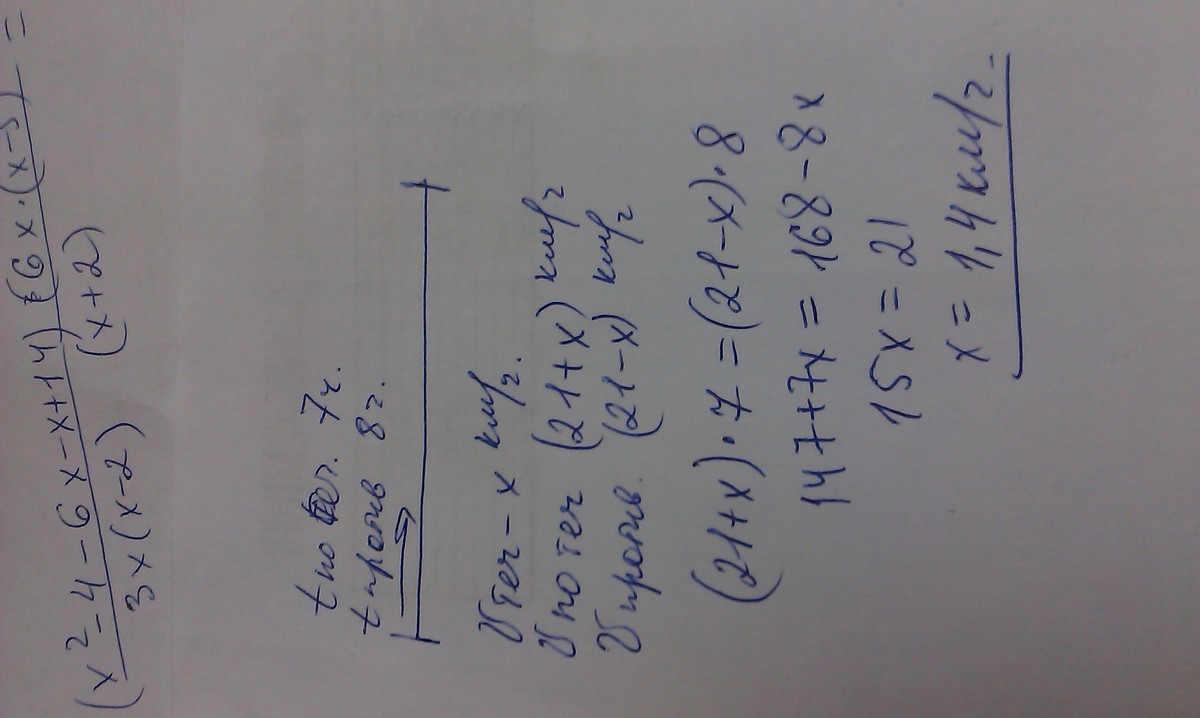 (x² - 4 - 6x - x + 14) · (6x · (x - 5) =
3x (x - 2) (x + 2)
t по теч. 7ч.
t против 8ч.
V теч - x км/ч.
V по теч (21 + x) км/ч
V против. (21 - x) км/ч
(21 + x) · 7 = (21 - x) · 8
147 + 7x = 168 - 8x
15x = 21
x = 1,4 км/ч.